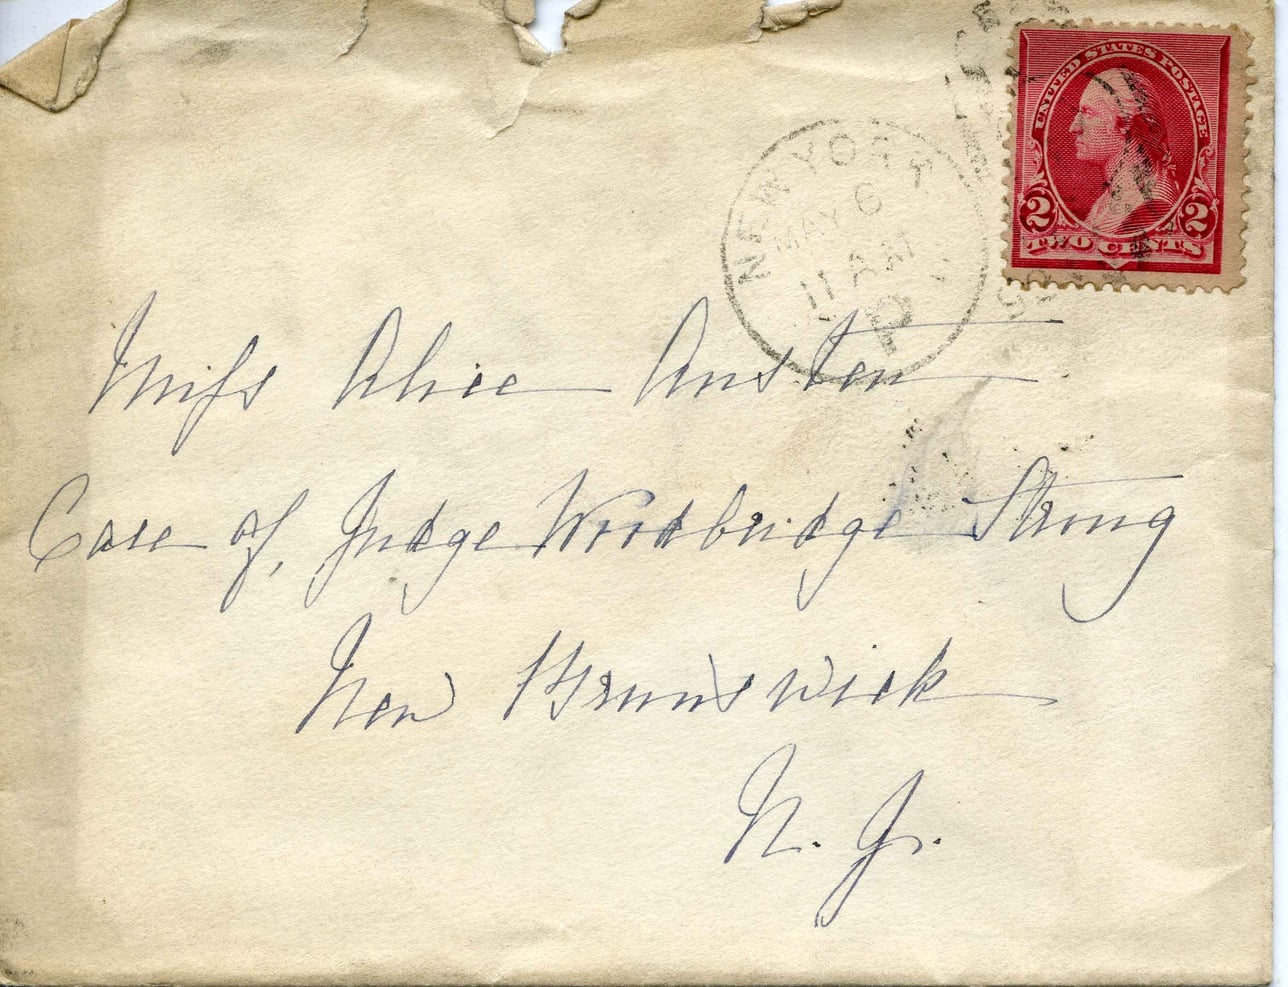 UNITED STATES POSTAGE
2 2
TWO CENTS
NEW YORK
MAY 6
11 AM
P
Miss Alice Austen
Care of, Judge Woodbridge Strong
New Brunswick
N. J.